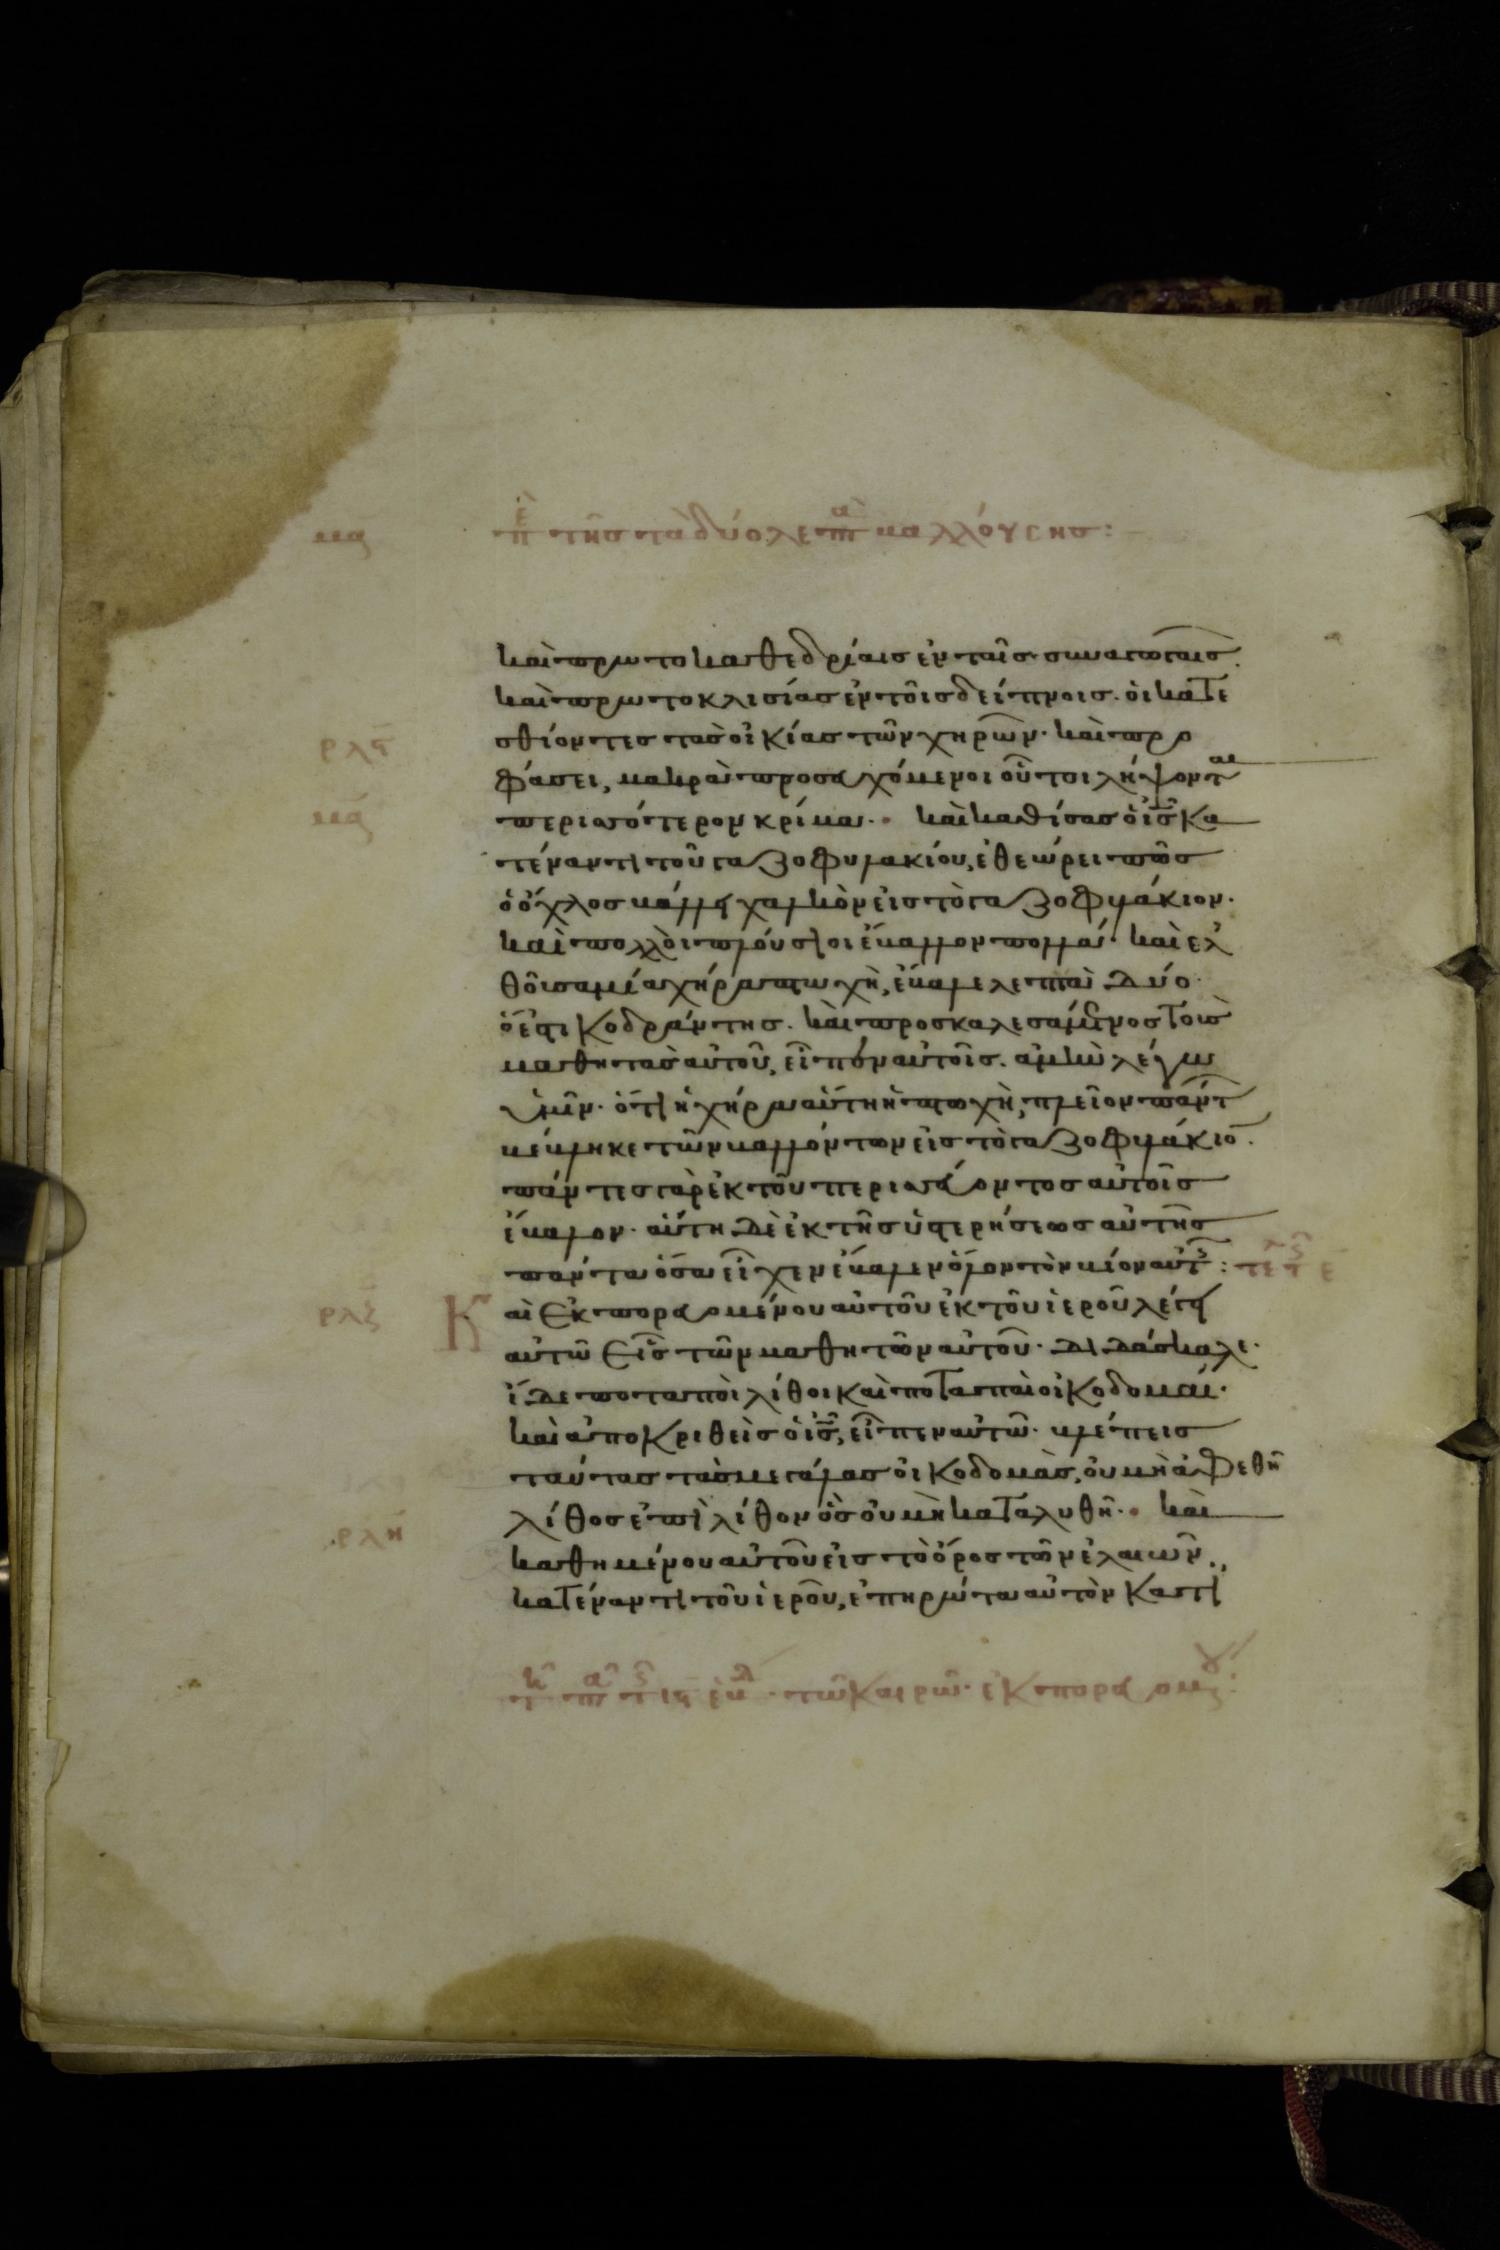 μα πε της τὰ δύο λεπτὰ βαλλούσης:
καὶ πρωτοκαθεδρίαις ἐν ταῖς συναγωγαῖς.
καὶ πρωτοκλισίας ἐν τοῖς δείπνοις. οἱ κατε
σθίοντες τὰς οἰκίας τῶν χηρῶν. καὶ προ
φάσει, μακρὰ προσευχόμενοι οὗτοι λήψονται
περισσότερον κρίμα. καὶ καθίσας ὁ ις κα
τέναντι τοῦ γαζοφυλακίου, ἐθεώρει πῶς
ὁ ὄχλος βάλλει χαλκὸν εἰς τὸ γαζοφυλάκιον.
καὶ πολλοὶ πλούσιοι ἔβαλλον πολλά. καὶ ἐλ
θοῦσα μία χήρα πτωχὴ, ἔβαλε λεπτὰ δύο.
ὅ ἐστι κοδράντης. καὶ προσκαλεσάμενος τοὺς
μαθητὰς αὐτοῦ, εἶπεν αὐτοῖς. ἀμὴν λέγω
ὑμῖν. ὅτι ἡ χήρα αὕτη ἡ πτωχὴ, πλεῖον πάντ
βέβληκε τῶν βαλλόντων εἰς τὸ γαζοφυλάκιο.
πάντες γὰρ ἐκ τοῦ περισσεύοντος αὐτοῖς
ἔβαλον. αὕτη δὲ ἐκ τῆς ὑστερήσεως αὐτῆς
πάντα ὅσα εἶχεν ἔβαλεν ὅλον τὸν βίον αὐτῆς:
ρλζ Καὶ ἐκπορευομένου αὐτοῦ ἐκ τοῦ ἱεροῦ λέγει
αὐτῶ εἷς τῶν μαθητῶν αὐτοῦ. διδάσκαλε.
ἴδε ποταποὶ λίθοι καὶ ποταπαὶ οἰκοδομαί.
καὶ ἀποκριθεὶς ὁ ις, εἶπεν αὐτῶ. βλέπεις
ταύτας τὰς μεγάλας οἰκοδομὰς, οὐ μὴ ἀφεθῆ
λίθος ἐπὶ λίθον ὃς οὐ μὴ καταλυθῆ. καὶ
ρλη καθημένου αὐτοῦ εἰς τὸ ὄρος τῶν ἐλαιῶν,
κατέναντι τοῦ ἱεροῦ, ἐπηρώτα αὐτὸν κατ
τῶ καιρῶ. ἐκπορευομ